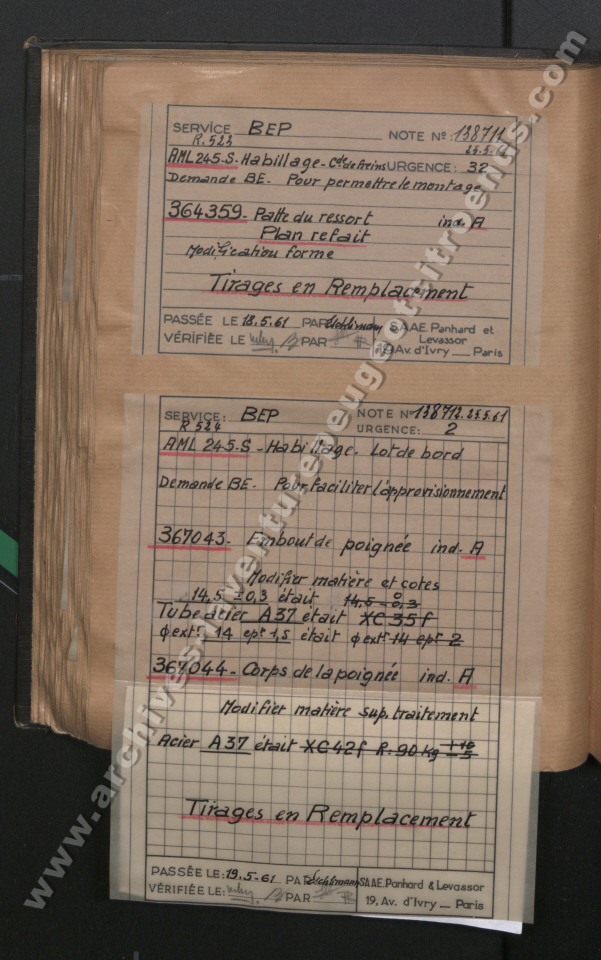 SERVICE BEP NOTE Nº: 138711
R.523 25.5.61
AML 245-S- Habillage - Cde de freins URGENCE: 32
Demande BE. Pour permettre le montage
364359- Patte du ressort ind. A
Plan refait
Modification forme
Tirages en Remplacement
PASSÉE LE 18.5.61 PAR S.A.A.E. Panhard et
Levassor
VÉRIFIÉE LE PAR 19 Av. d'Ivry — Paris
SERVICE: BEP NOTE Nº 138712. 25.5.61
R 524 URGENCE: 2
AML 245-S - Habillage. Lot de bord
Demande BE. Pour faciliter l'approvisionnement
367043- Embout de poignée ind. A
Modifier matière et cotes
14,5 ±0,3 était 14,5 0 -0,3
Tube acier A37 était XC 35 f
φ extr 14 epr 1,5 était φ extr 14 epr 2
367044- Corps de la poignée ind. A
Modifier matière sup. traitement
Acier A37 était XC 42 f R. 90 kg +10 -5
Tirages en Remplacement
PASSÉE LE: 19.5-61 PAR S.A.A.E. Panhard & Levassor
VÉRIFIÉE LE: PAR 19, Av. d'Ivry — Paris
www.archives-laventurepeugeotcitroends.com